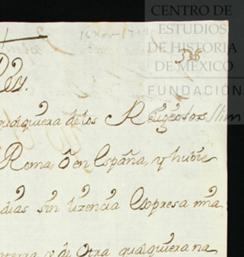 CENTRO DE
ESTUDIOS
DE HISTORIA
DE MÉXICO
FUNDACIÓN
Rey.
qualquiera de los Religiosos
Roma, ó en España, y huvie
dias sin lizencia expresa mia
ó de otra qualquiera na